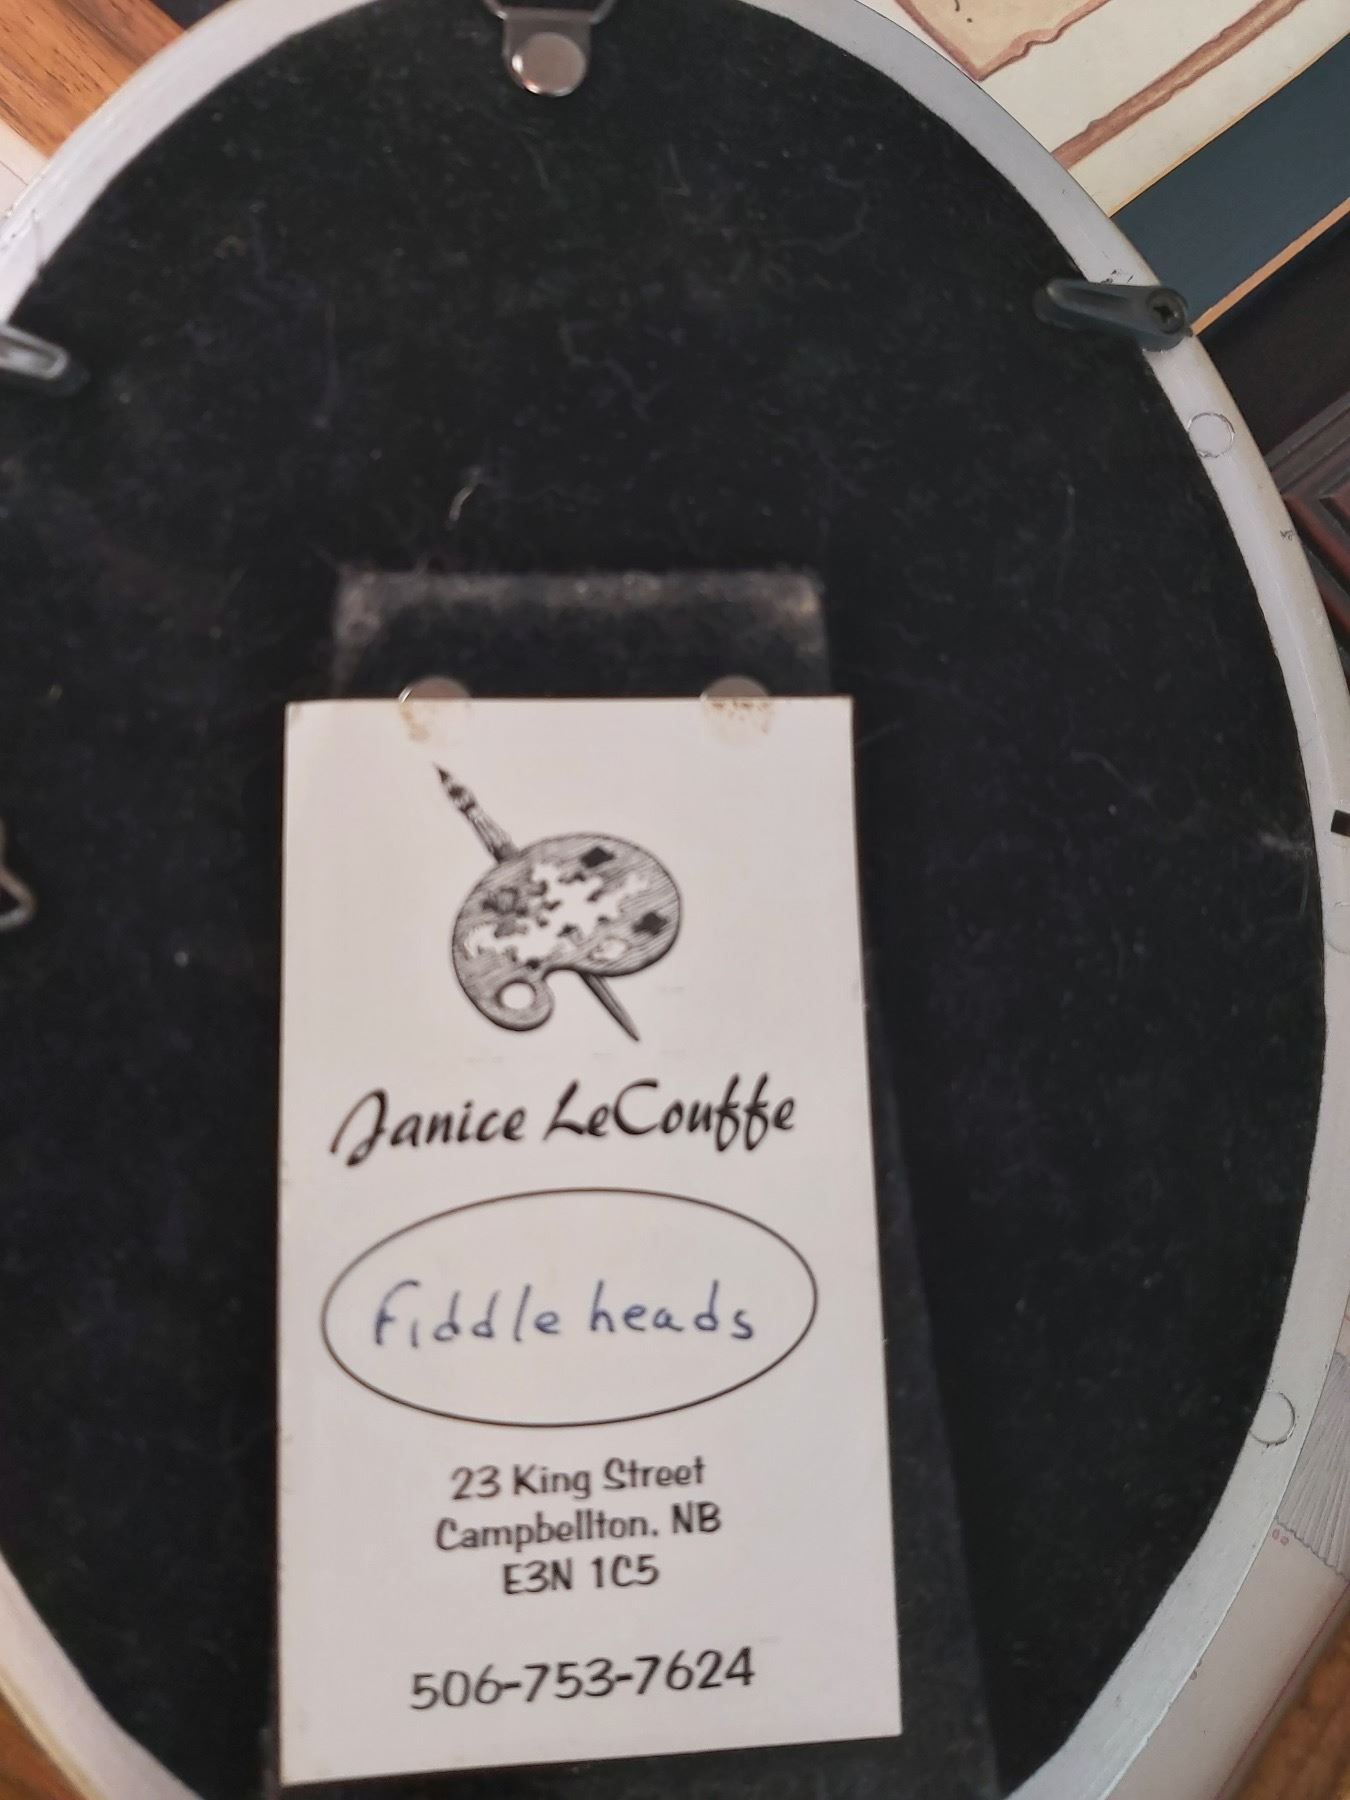 Janice LeCouffe
Fiddle heads
23 King Street
Campbellton. NB
E3N 1C5
506-753-7624